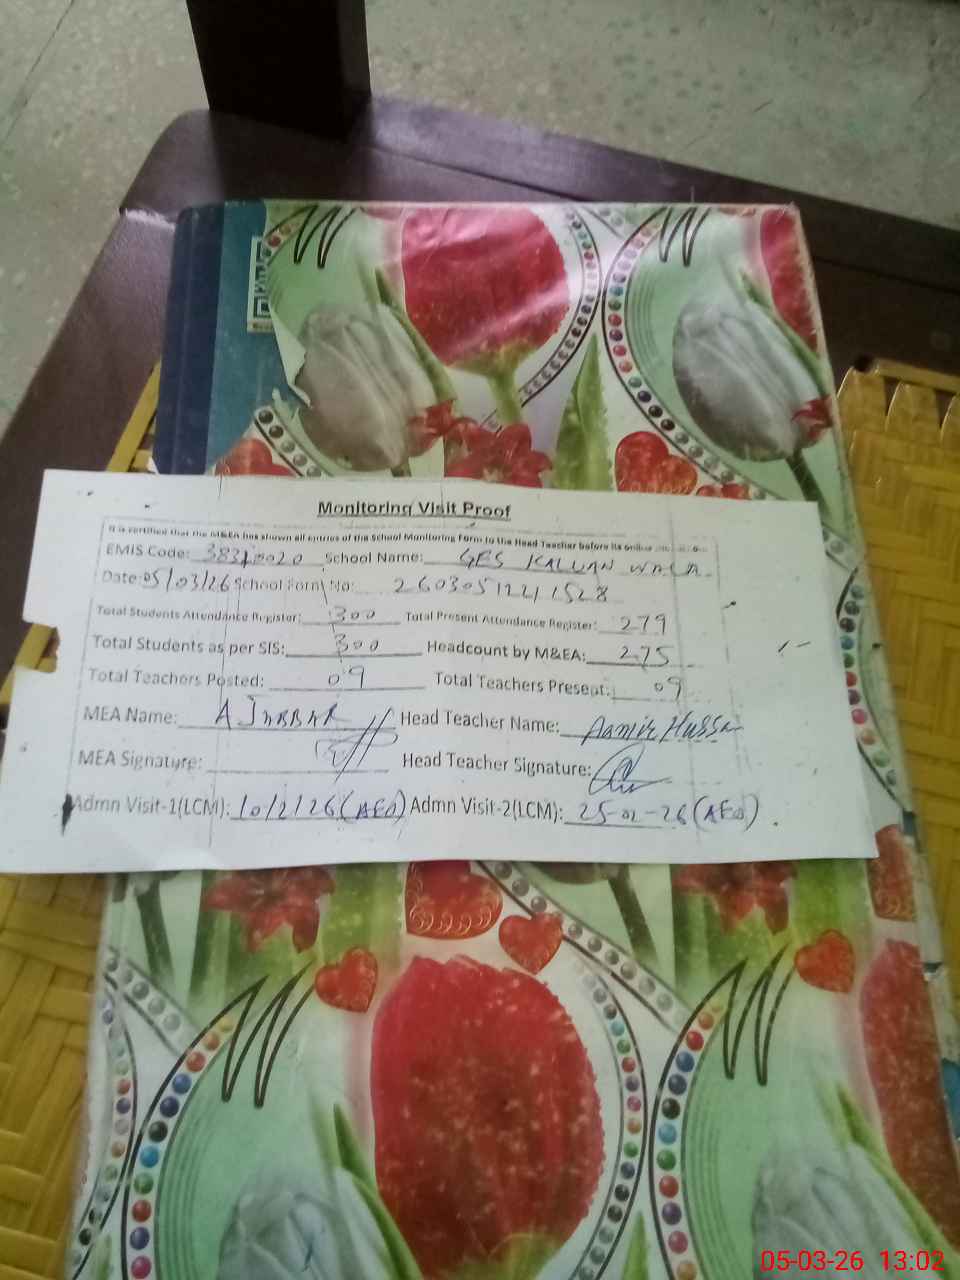 Monitoring Visit Proof
It is certified that the M&EA has shown all entries of the School Monitoring Form to the Head Teacher before its online
EMIS Code: 38310020 School Name: GES KALUAN WALA
Date: 05/03/26 School Form No: 2603051241528
Total Students Attendance Register: 300 Total Present Attendance Register: 279
Total Students as per SIS: 300 Headcount by M&EA: 275
Total Teachers Posted: 09 Total Teachers Present: 09
MEA Name: A JABBAR Head Teacher Name: Aamir Hussa
MEA Signature: Head Teacher Signature:
Admn Visit-1(LCM): 10/2/26 (AEO) Admn Visit-2(LCM): 25-02-26 (AEO)
05-03-26 13:02